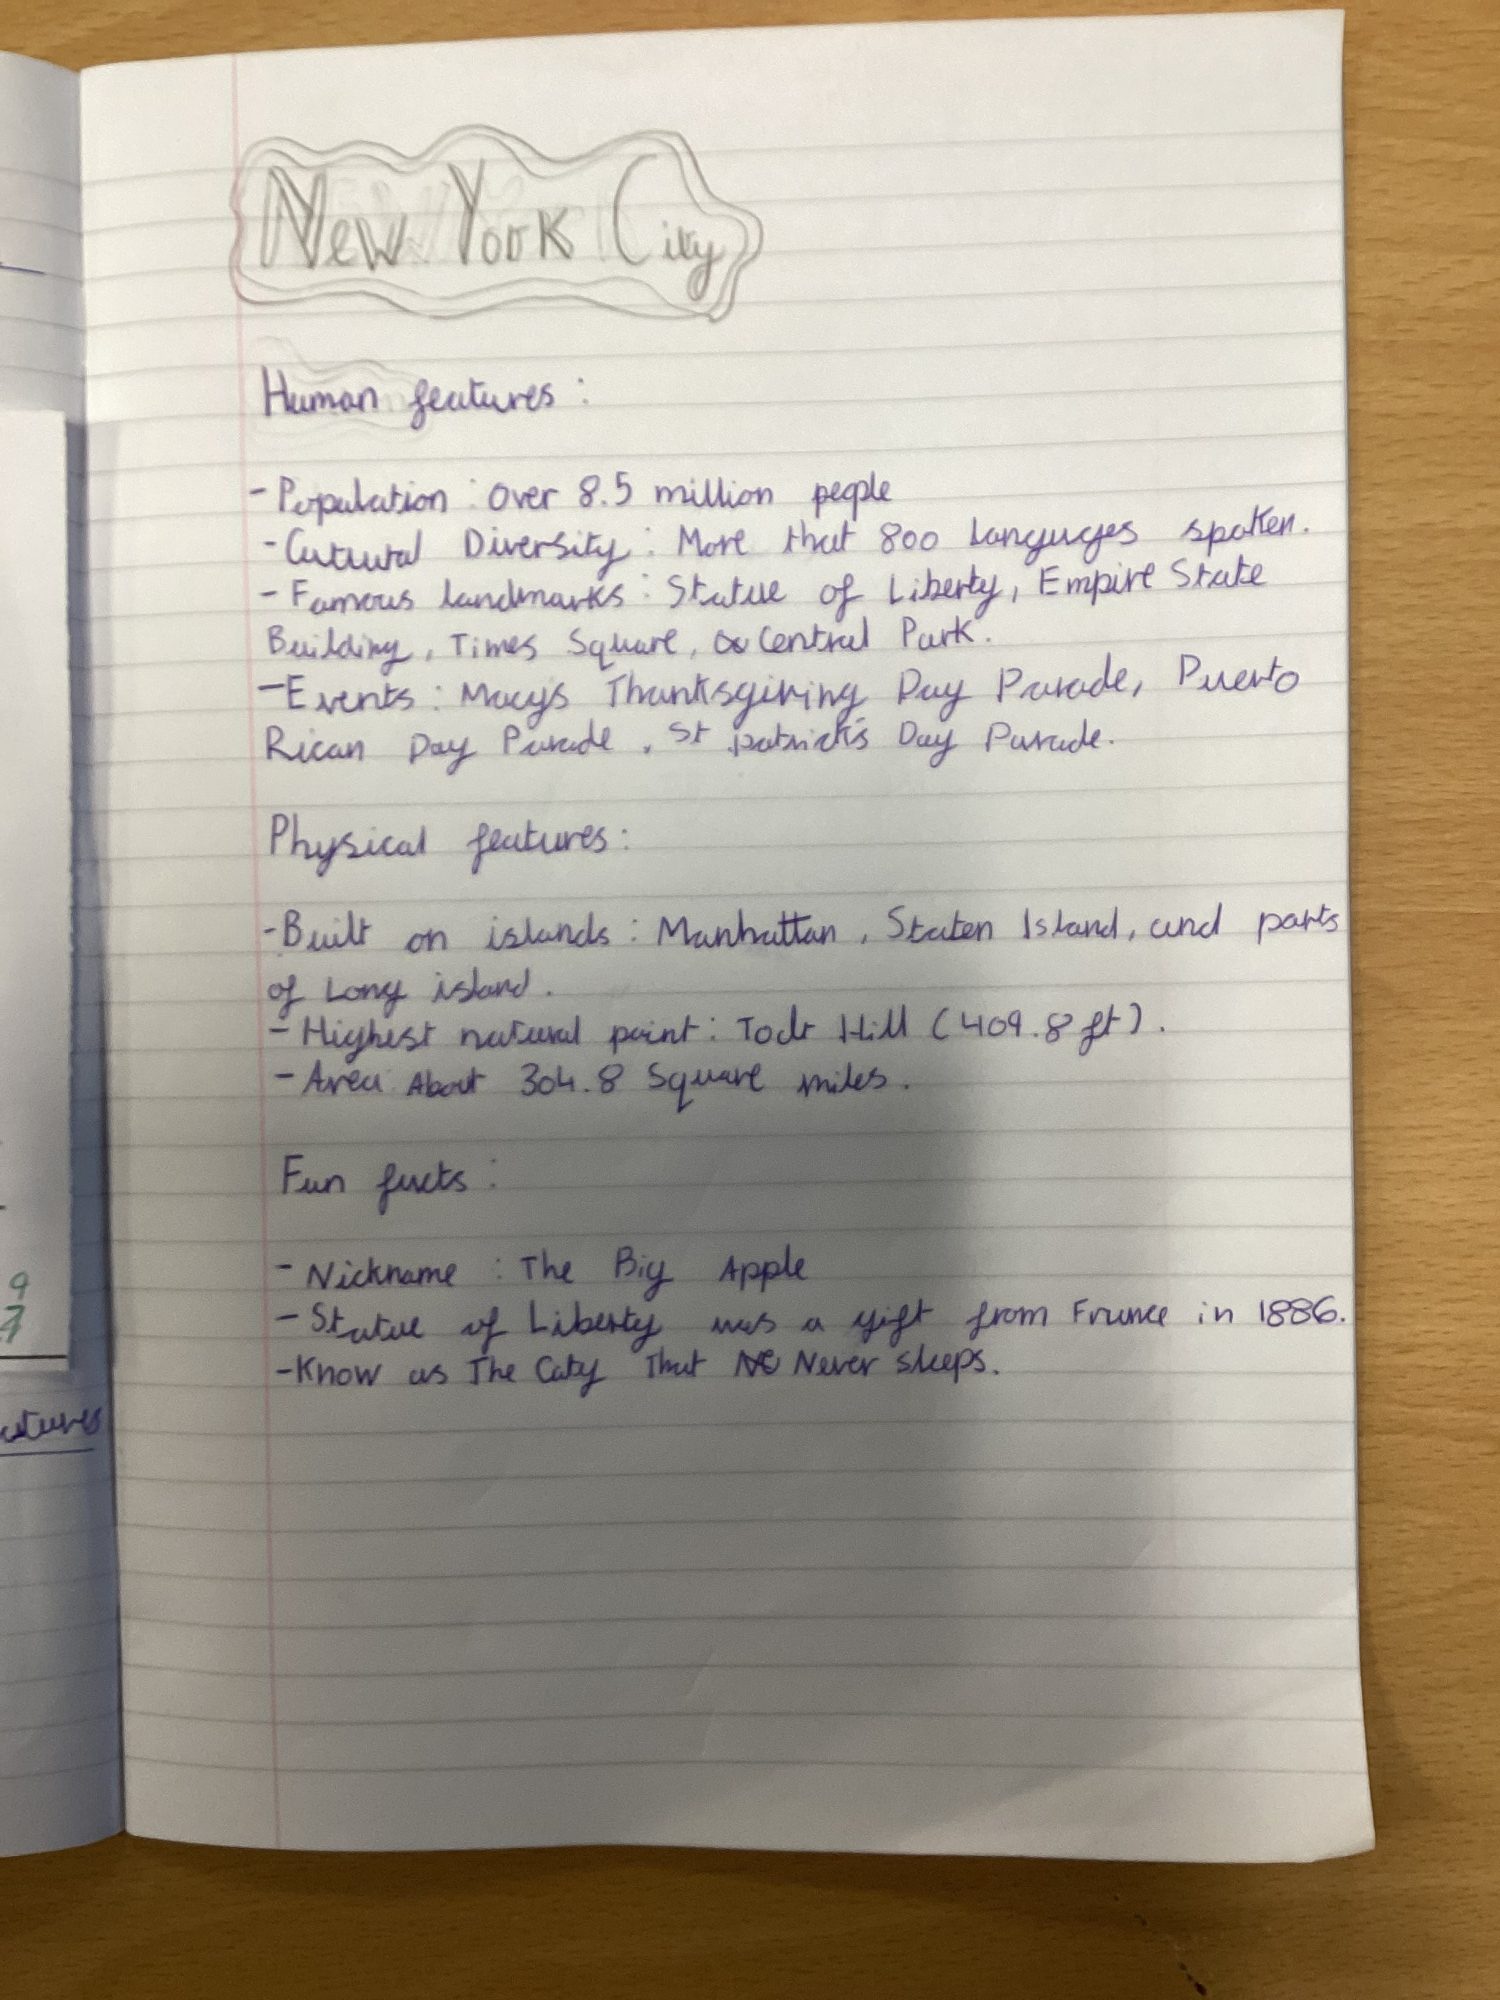 New York City
Human features:
- Population: Over 8.5 million people
- Cultural Diversity: More that 800 languages spoken.
- Famous landmarks: Statue of Liberty, Empire State
Building, Times Square, Central Park.
- Events: Macy's Thanksgiving Day Parade, Puerto
Rican Day Parade, St patrick's Day Parade.
Physical features:
- Built on islands: Manhattan, Staten Island, and parts
of Long island.
- Highest natural point: Todt Hill (409.8 ft).
- Area: About 304.8 Square miles.
Fun facts:
- Nickname: The Big Apple
- Statue of Liberty was a gift from France in 1886.
- Know as The City That Never sleeps.
9